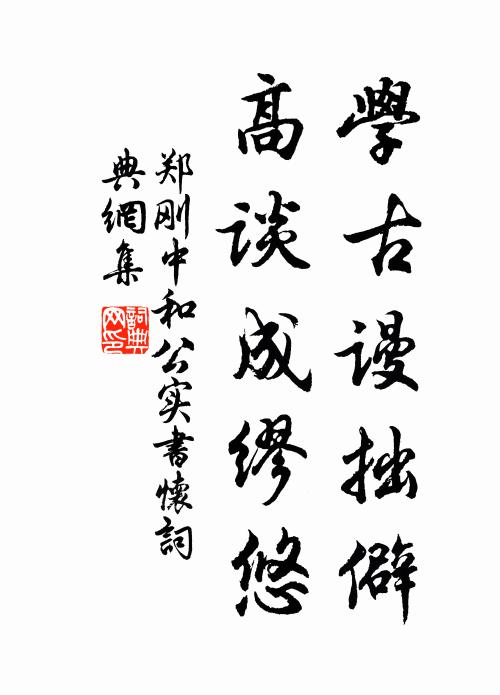 學古谩拙僻
高谈成繆悠
郑刚中和公实書懷詞
典網集
詞典网印